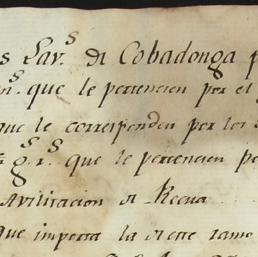 s Lav.s di Cobadonga p
n.s que le pertencien por el
que le corresponden por los
g.s r.s que le pertencien po
Avilitacion di Recua
que importa la di este ramo